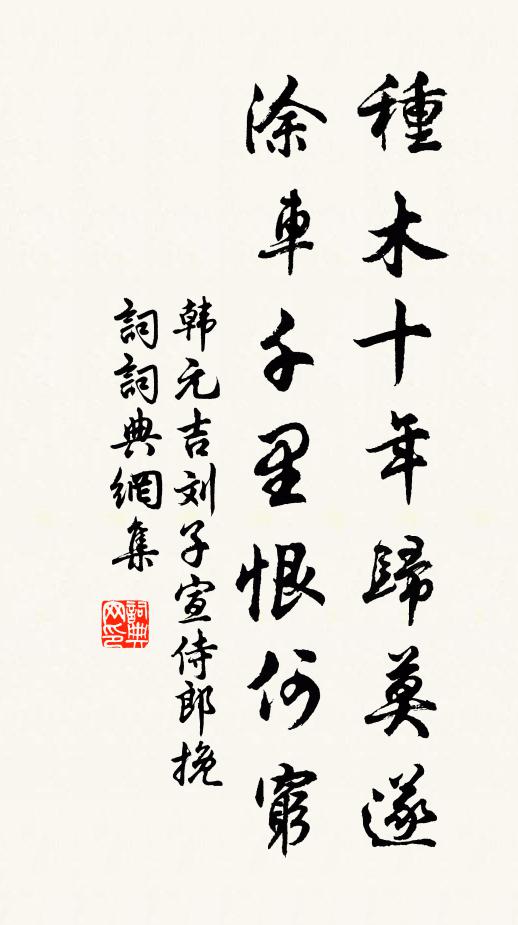 種木十年歸莫遂
涂車千里恨何窮
韩元吉刘子宣侍郎挽
詞詞典網集
詞典网印